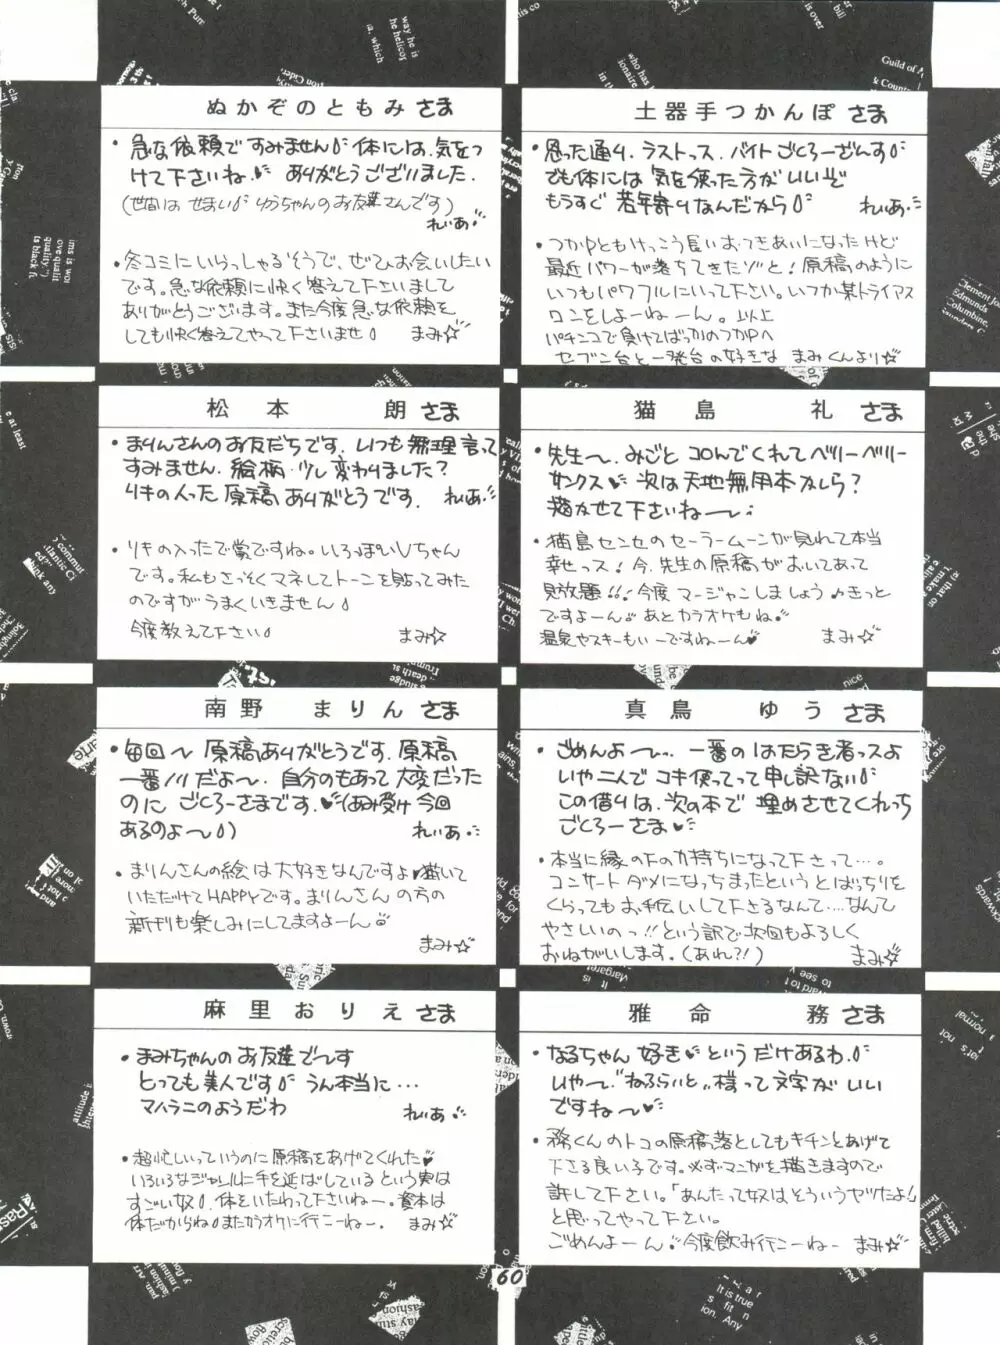 ぬかぞのともみさま
・急な依頼ですみません 体には、気をつ
けて下さいね♥ ありがとうございました。
(世間はせまい ゆうちゃんのお友達さんです)
れいあ
・冬コミにいらっしゃるそうで、ぜひお会いしたい
です。急な依頼に快く答えて下さいまして
ありがとうございます。また今度急な依頼を
しても快く答えてやって下さいませ まみ☆
土器手つかんぽさま
・思った通り、ラストっス、バイトごくろーざんす
でも体には気を使った方がいいぞ
もうすぐ若年寄りなんだから れいあ
・つかPともけっこう長いおつきあいになったけど
最近パワーが落ちてきたゾと!原稿のように
いつもパワフルにいって下さい。いつか某トライアス
ロンをしよーねーん。以上
パチンコで負けてばっかのつかPへ
セブン台と一発台の好きな まみくんより☆
松本 朗さま
・まりんさんのお友だちです。いつも無理言って
すみません。絵柄少し変わりました?
リキの入った原稿ありがとうです。 れいあ
・リキの入ったで賞ですね。いろっぽいVちゃん
です。私もさっそくマネしてトーンを貼ってみた
のですがうまくいきません
今度教えて下さい まみ☆
猫島 礼さま
・先生〜、みごとコロんでくれてベリーベリー
サンクス♥ 次は天地無用本かしら?
描かせて下さいね〜
・猫島センセのセーラームーンが見れて本当
幸せっス!今、先生の原稿がおいてあって
見放題!!今度マージャンしましょう♪きっと
ですよーん あとカラオケもね
温泉やスキーもいーですねーん♥ まみ☆
南野 まりんさま
・毎回〜原稿ありがとうです。原稿
一番ノリだよ〜。自分のもあって大変だった
のに ごくろーさまです♥(あみ受け今回
あるのよ〜) れいあ
・まりんさんの絵は大好きなんですよ♥描いて
いただけてHAPPYです。まりんさんの方の
新刊も楽しみにしてますよーん
まみ☆
真鳥 ゆうさま
・ごめんよ〜、一番のはたらき者っスよ
いや二人でコキ使ってって申し訳ない
この借りは、次の本で埋めさせてくれっち
ごくろーさま♥
・本当に縁の下の力持ちになって下さって…。
コンサートダメになっちまったというとばっちりを
くらってもお手伝いして下さるなんて…なんて
やさしいのっ!!という訳で次回もよろしく
おねがいします。(あれ?!) まみ☆
麻里おりえさま
・まみちゃんのお友達で〜す
とっても美人です うん本当に…
マハラニのようだわ れいあ
・超忙しいっていうのに原稿をあげてくれた♥
いろいろなジャンルに手を延ばしているという実は
すごい奴 体をいたわって下さいねー。資本は
体だからね またカラオケに行こーねー。 まみ☆
雅命 務さま
・なるちゃん好き♥というだけあるわ
いや〜"ねるらいと"様って文字がいい
ですね〜♥
・務くんのトコの原稿落としてもキチンとあげて
下さる良い子です。必ずマンガを描きますので
許して下さい。「あんたって奴はそういうヤツだよ!」
と思ってやって下さい。
ごめんよーん 今度飲み行こーねー まみ☆
60